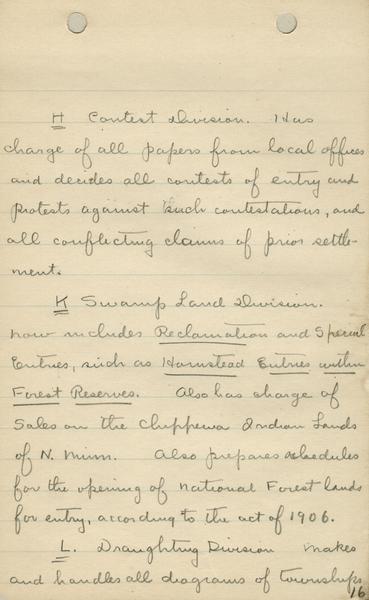 H Contest Division. Has
charge of all papers from local offices
and decides all contests of entry and
protests against such contestations, and
all conflicting claims of prior settle-
ment.
K Swamp Land Division.
now includes Reclamation and Special
Entries, such as Homstead Entries within
Forest Reserves. Also has charge of
Sales on the Chippewa Indian Lands
of N. Minn. Also prepares schedules
for the opening of National Forest lands
for entry, according to the act of 1906.
L. Draughting Division makes
and handles all diagrams of townships
16